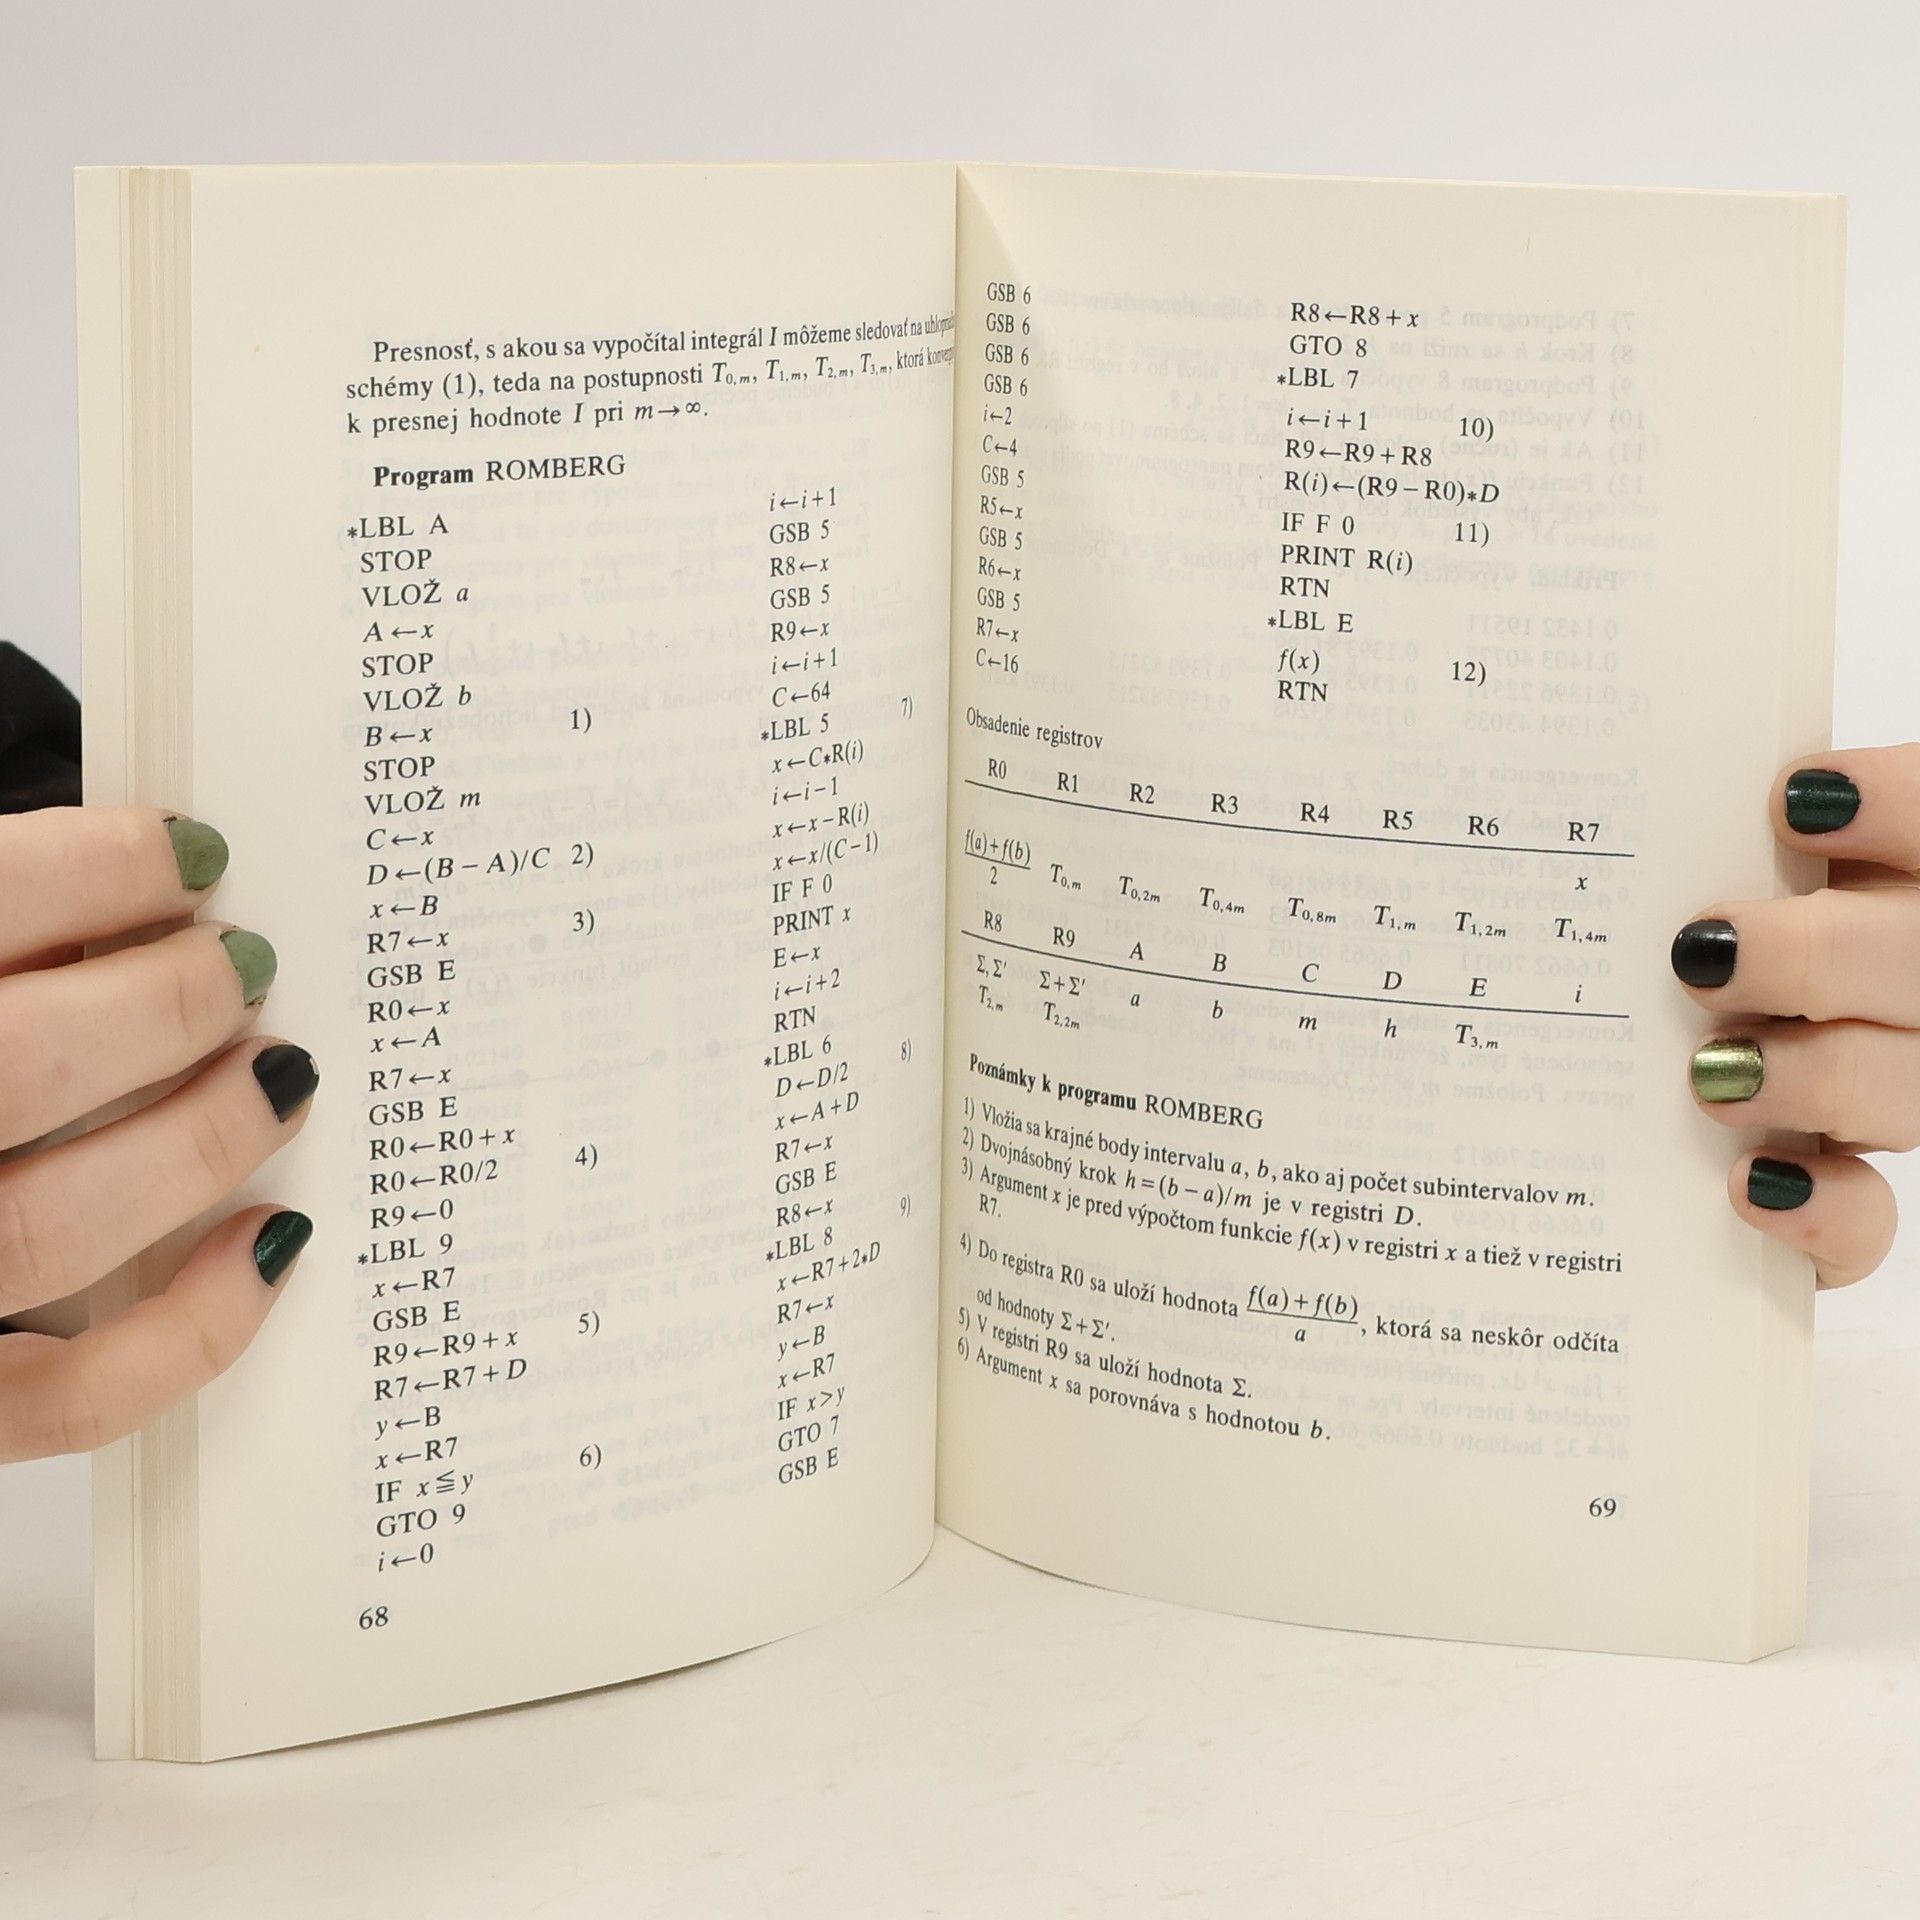 Presnosť, s akou sa vypočítal integrál I môžeme sledovať na
schémy (1), teda na postupnosti T0,m, T1,m, T2,m, T3,m, ktorá
k presnej hodnote I pri m→∞.
Program ROMBERG
*LBL A
STOP
VLOŽ a
A←x
STOP
VLOŽ b
B←x 1)
STOP
VLOŽ m
C←x
D←(B−A)/C 2)
x←B
R7←x 3)
GSB E
R0←x
x←A
R7←x
GSB E
R0←R0+x
R0←R0/2 4)
R9←0
*LBL 9
x←R7
GSB E
R9←R9+x 5)
R7←R7+D
y←B
x←R7
IF x≦y 6)
GTO 9
i←0
i←i+1
GSB 5
R8←x
GSB 5
R9←x
i←i+1
C←64
*LBL 5 7)
x←C*R(i)
i←i−1
x←x−R(i)
x←x/(C−1)
IF F 0
PRINT x
E←x
i←i+2
RTN
*LBL 6 8)
D←D/2
x←A+D
R7←x
GSB E
R8←x
*LBL 8 9)
x←R7+2*D
R7←x
y←B
x←R7
IF x>y
GTO 7
GSB E
68
GSB 6
GSB 6
GSB 6
GSB 6
i←2
C←4
GSB 5
R5←x
GSB 5
R6←x
GSB 5
R7←x
C←16
R8←R8+x
GTO 8
*LBL 7
i←i+1 10)
R9←R9+R8
R(i)←(R9−R0)*D
IF F 0 11)
PRINT R(i)
RTN
*LBL E
f(x) 12)
RTN
Obsadenie registrov
R0 R1 R2 R3 R4 R5 R6 R7
x
(f(a)+f(b))/2 T0,m T0,2m T0,4m T0,8m T1,m T1,2m T1,4m
R8 R9 A B C D E i
Σ, Σ′ Σ+Σ′ a b m h T3,m
T2,m T2,2m
Poznámky k programu ROMBERG
1) Vložia sa krajné body intervalu a, b, ako aj počet subintervalov m.
2) Dvojnásobný krok h=(b−a)/m je v registri D.
3) Argument x je pred výpočtom funkcie f(x) v registri x a tiež v registri
R7.
4) Do registra R0 sa uloží hodnota (f(a)+f(b))/a, ktorá sa neskôr odčíta
od hodnoty Σ+Σ′.
5) V registri R9 sa uloží hodnota Σ.
6) Argument x sa porovnáva s hodnotou b.
69